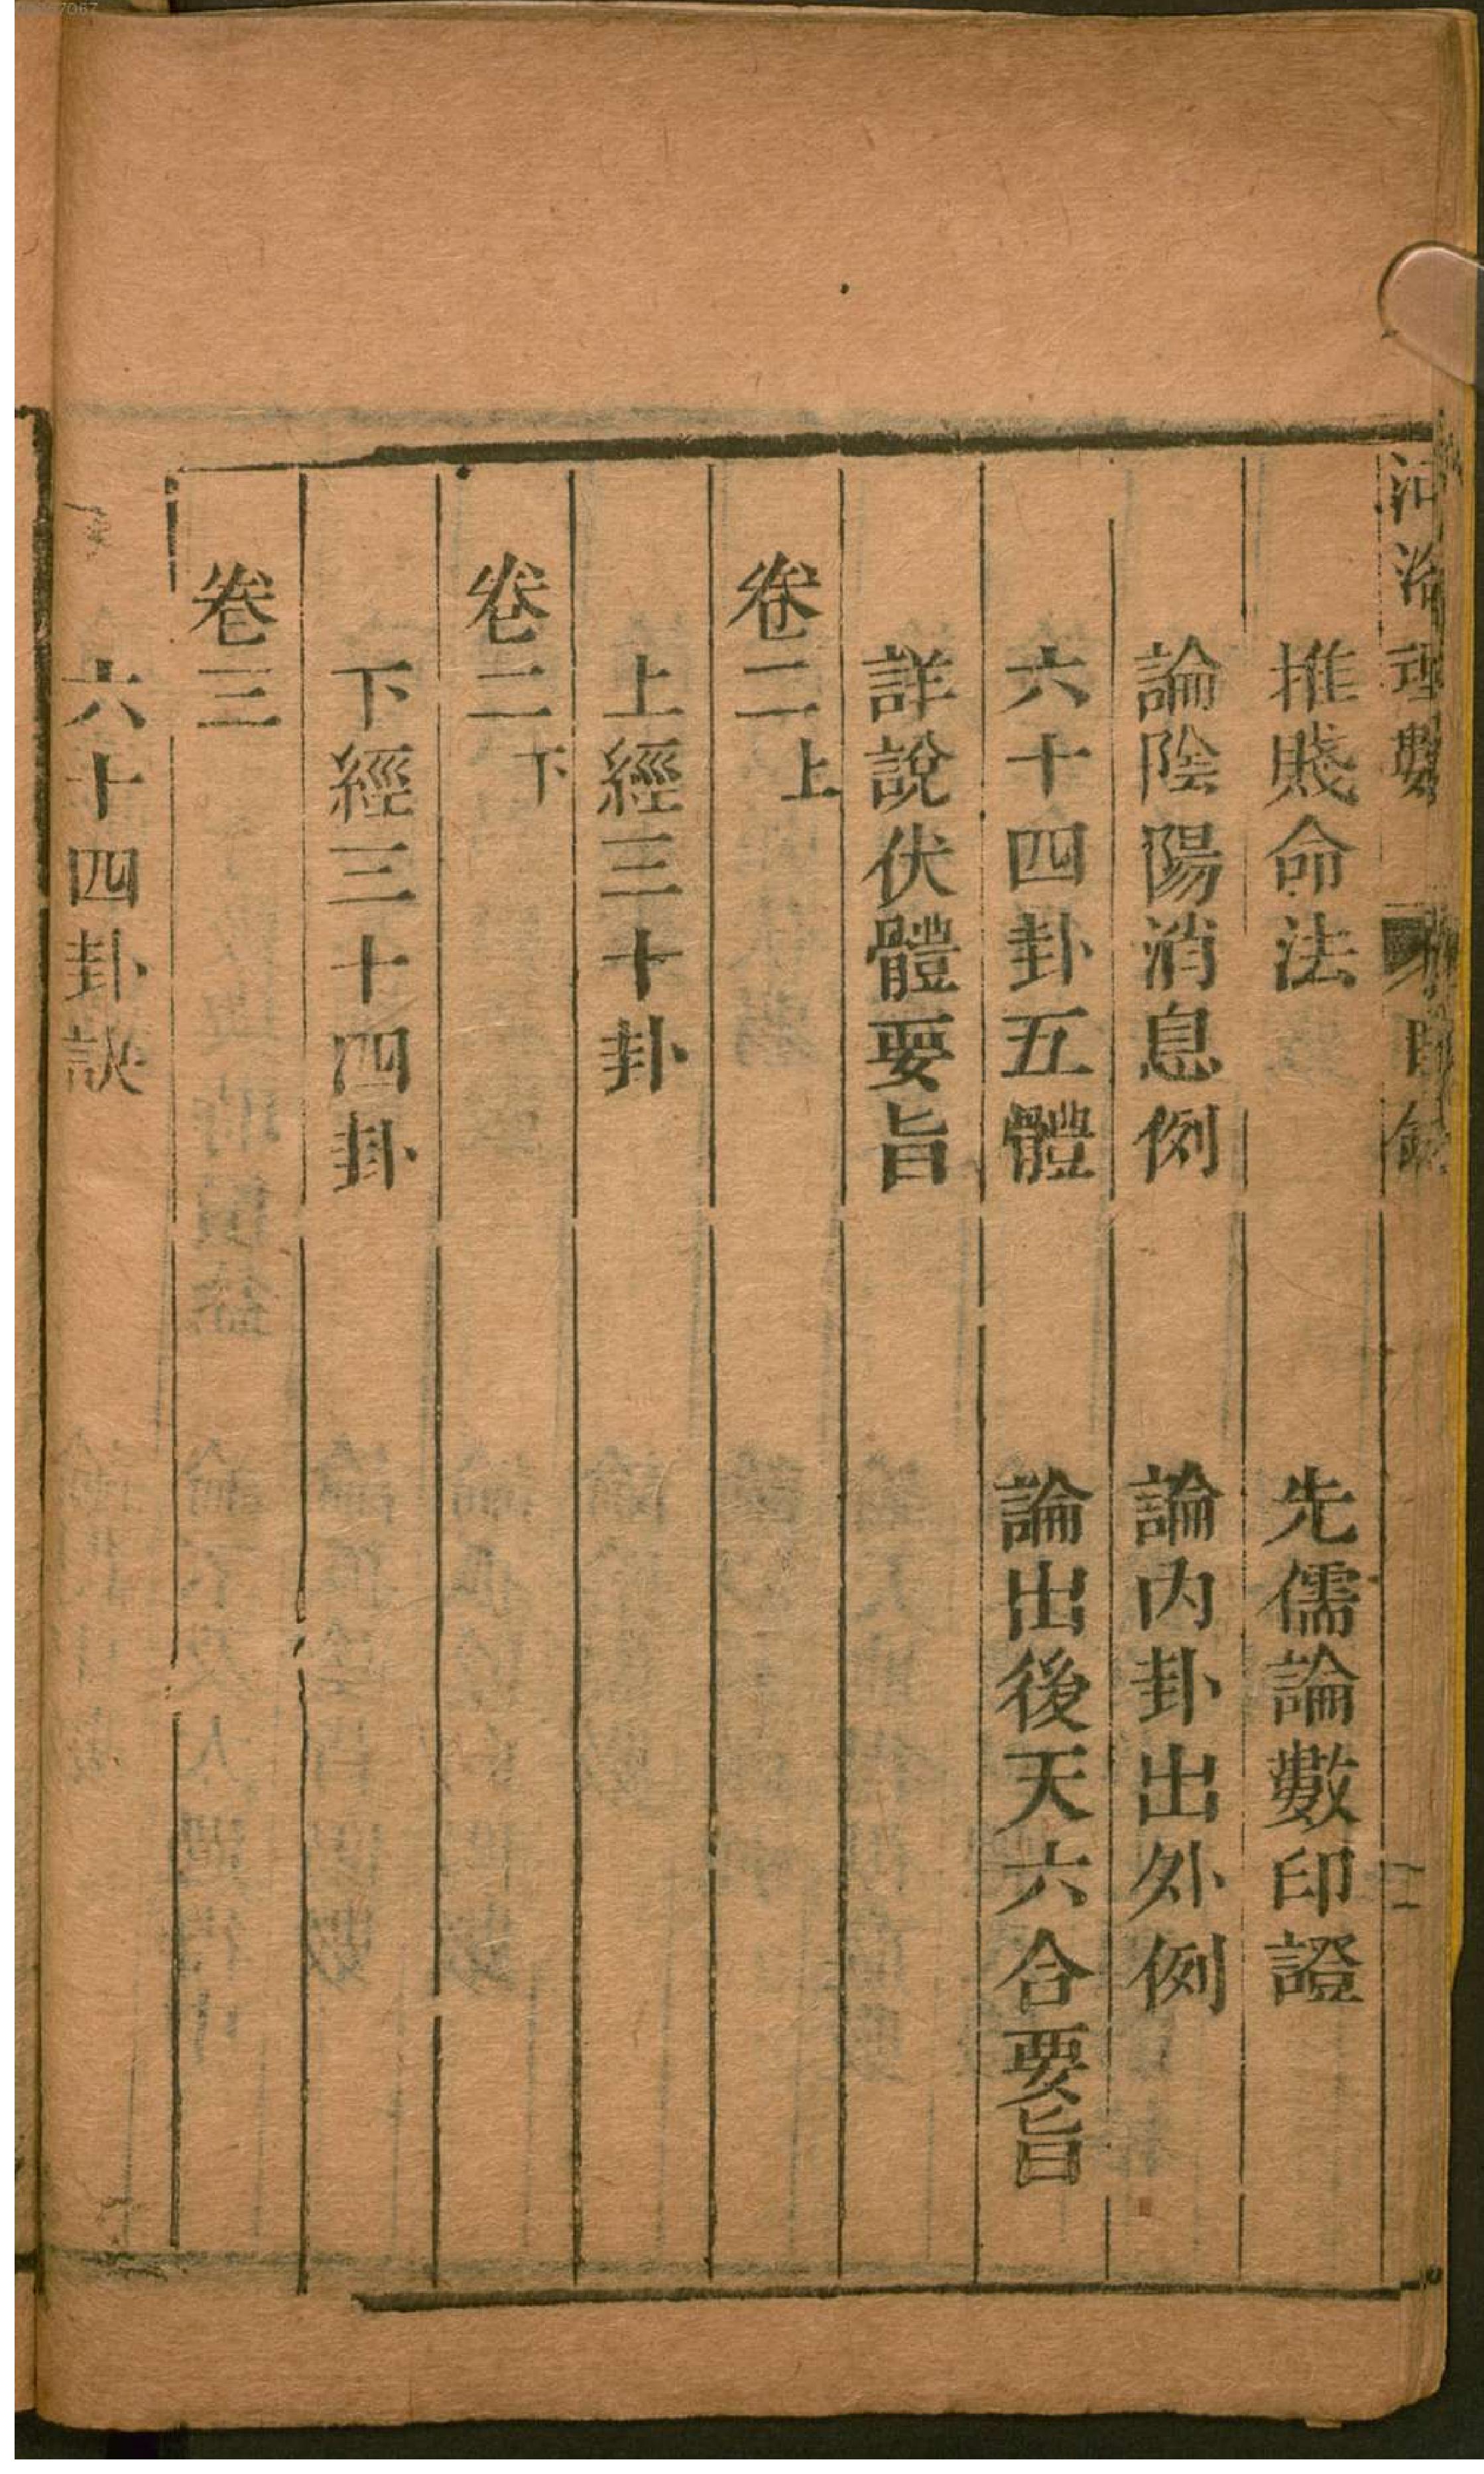 河洛理數　目錄　二
推賤命法　先儒論數印證
論陰陽消息例　論內卦出外例
六十四卦五體　論出後天六合要旨
詳說伏體要旨
卷二上
上經三十卦
卷二下
下經三十四卦
卷三
六十四卦訣